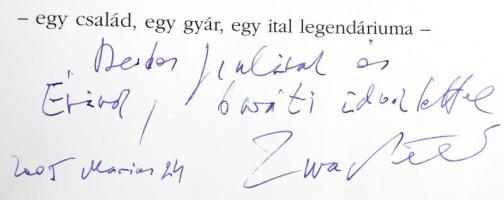 – egy család, egy gyár, egy ital legendáriuma –
és
baráti üdvözlettel
2005 Március 24
Zwack Péter